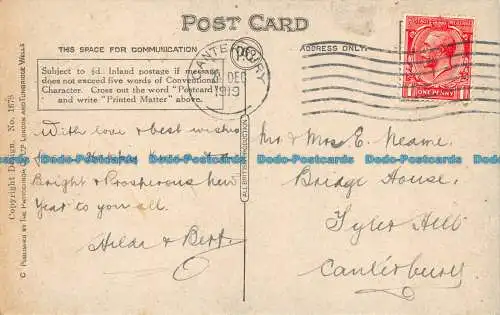 POST CARD
THIS SPACE FOR COMMUNICATION
ADDRESS ONLY.
Subject to ½d. Inland postage if message
does not exceed five words of Conventional
Character. Cross out the word "Postcard"
and write "Printed Matter" above.
CANTERBURY
DEC
1919
POSTAGE REVENUE
ONE PENNY
With love & best wishes
for a
Bright & Prosperous New
Year to you all.
Hilda & Bert.
Mr & Mrs E. Neame.
Bridge House,
Tyler Hill
Canterbury
ALL BRITISH PRODUCTION
Copyright Design. No. 1675
LONDON AND TUNBRIDGE WELLS